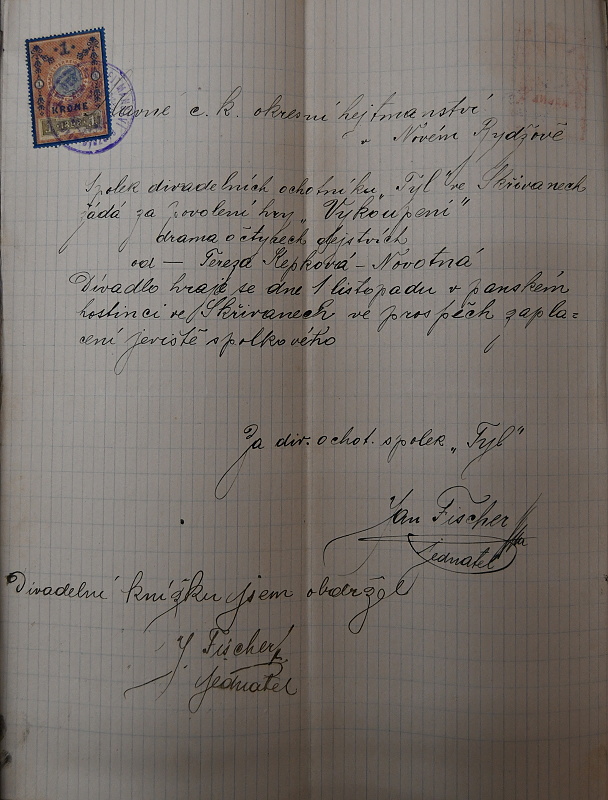 1
KRONE
Slavné c. k. okresní hejtmanství
v Novém Bydžově
Spolek divadelních ochotníků „Tyl" ve Skřivanech
žádá za povolení hry „Vykoupení"
drama o čtyrech dějstvích
od — Tereza Kepková – Novotná
Divadlo hraje se dne 1 listopadu v panském
hostinci ve Skřivanech ve prospěch zapla=
cení jeviště spolkového
Za div. ochot. spolek „Tyl"
Jan Fischer
jednatel
Divadelní knížku jsem obdržel
J. Fischer
jednatel